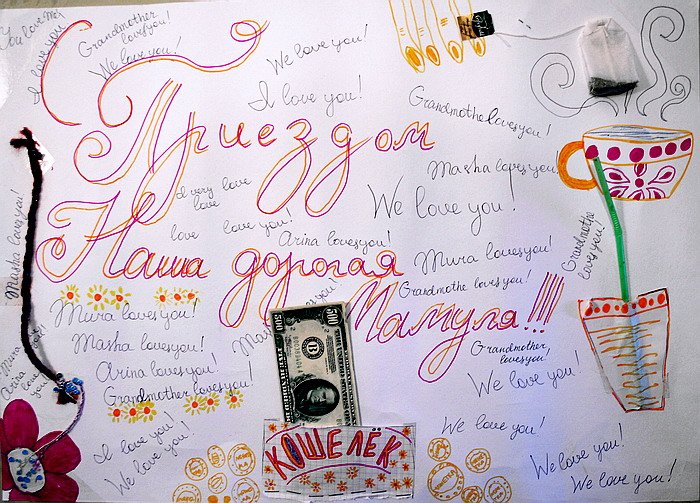 You love me!
I love you!
Grandmother
loves you!
We love you!
We love you!
I love you!
Grandmother loves you!
С Приездом
Masha loves you!
I very love
love
We love you!
love love you!
Arina loves you!
Наша дорогая
Mura loves you!
Grandmothe loves you!
Grandmothe
loves you!
Masha loves you!
Мамуля!!!!
Mura loves you!
Masha loves you!
Arina loves you!
Grandmother loves you!
Grandmother
loves you!
We love you!
500
B
КОШЕЛЁК
Mura
Arina
loves
you!
I love you!
We love you!
We love you!
We love you!
We love you!